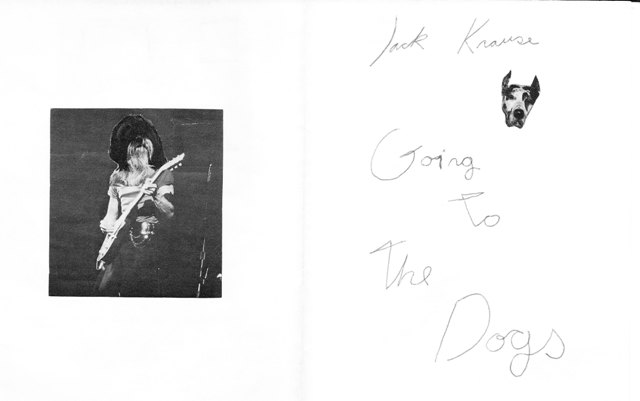 Jack Krause
Going
to
The
Dogs